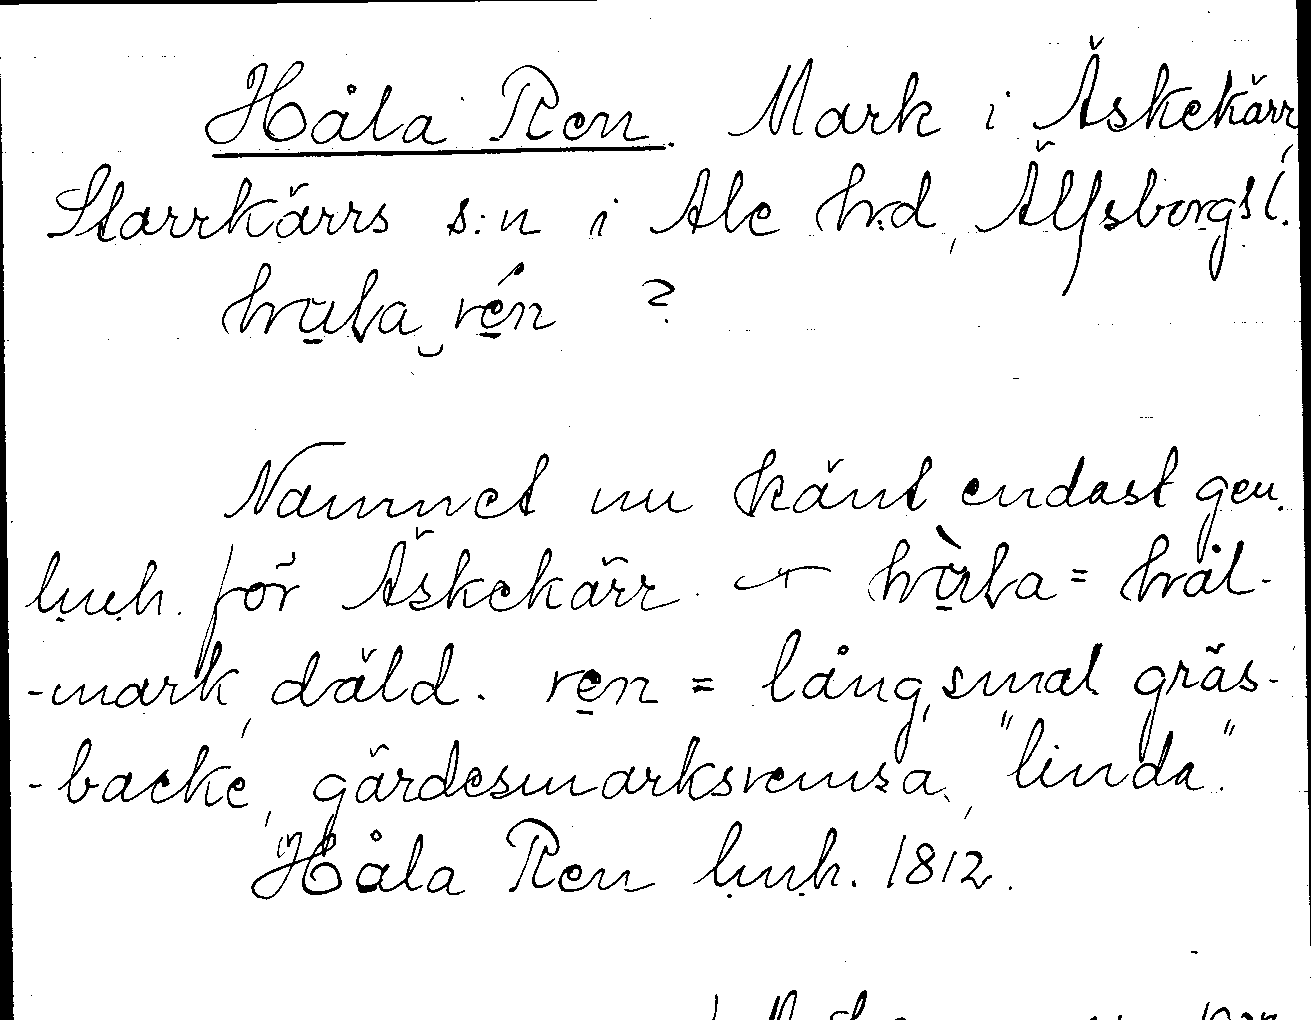 Håla Ren. Mark i Äskekärr,
Starrkärrs s:n i Ale hrd, Älfsborgs l.
hu̱la‿ré̱n ?
Namnet nu känt endast gen.
lmh. för Äskekärr. hù̱la = hål-
-mark, däld. re̱n = lång, smal gräs-
-backe, gärdesmarksremsa, "linda".
Håla Ren lmh. 1812.